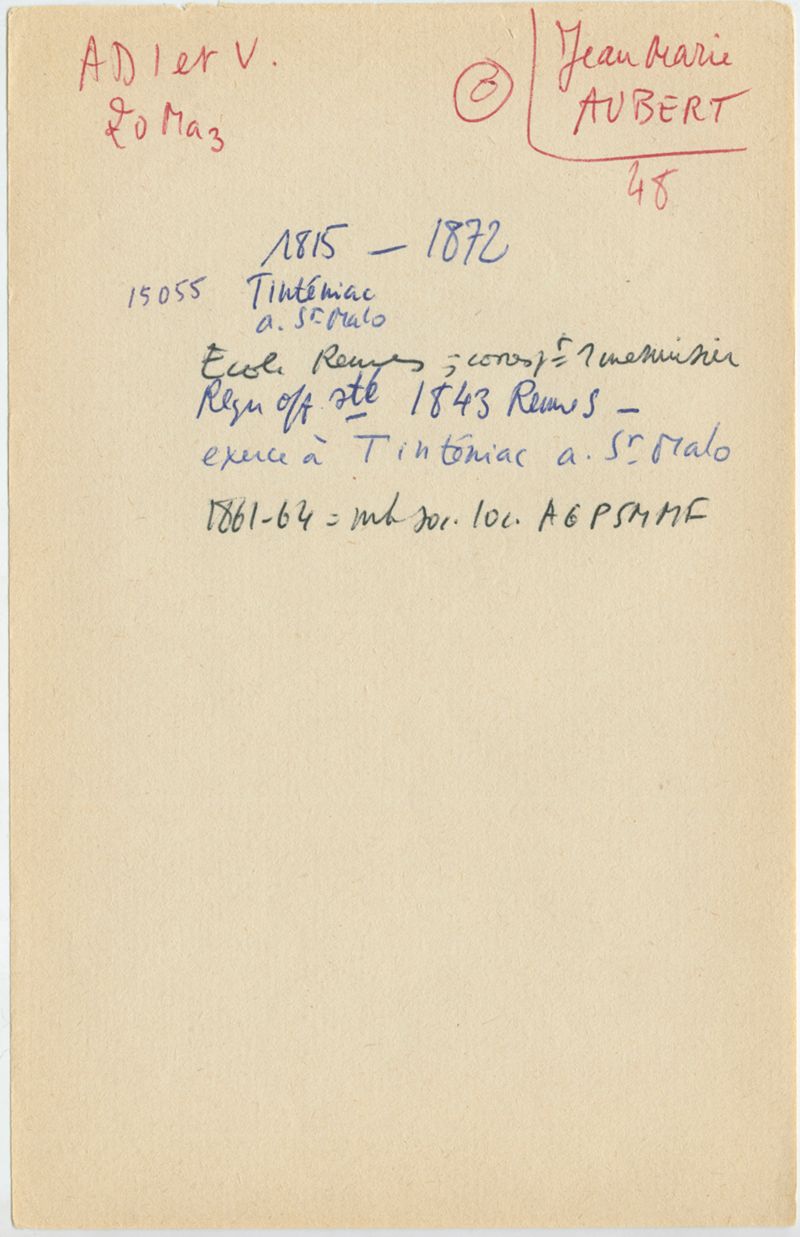 AD I et V.
20 Ma 3
Jean Marie
AUBERT
48
1815 – 1872
15055 Tinténiac
a. St Malo
Ecole Rennes ;
Reçu off. sté 1843 Rennes –
exerce à Tinténiac a. St Malo
1861-64 = mb soc. loc. AGPSMMF